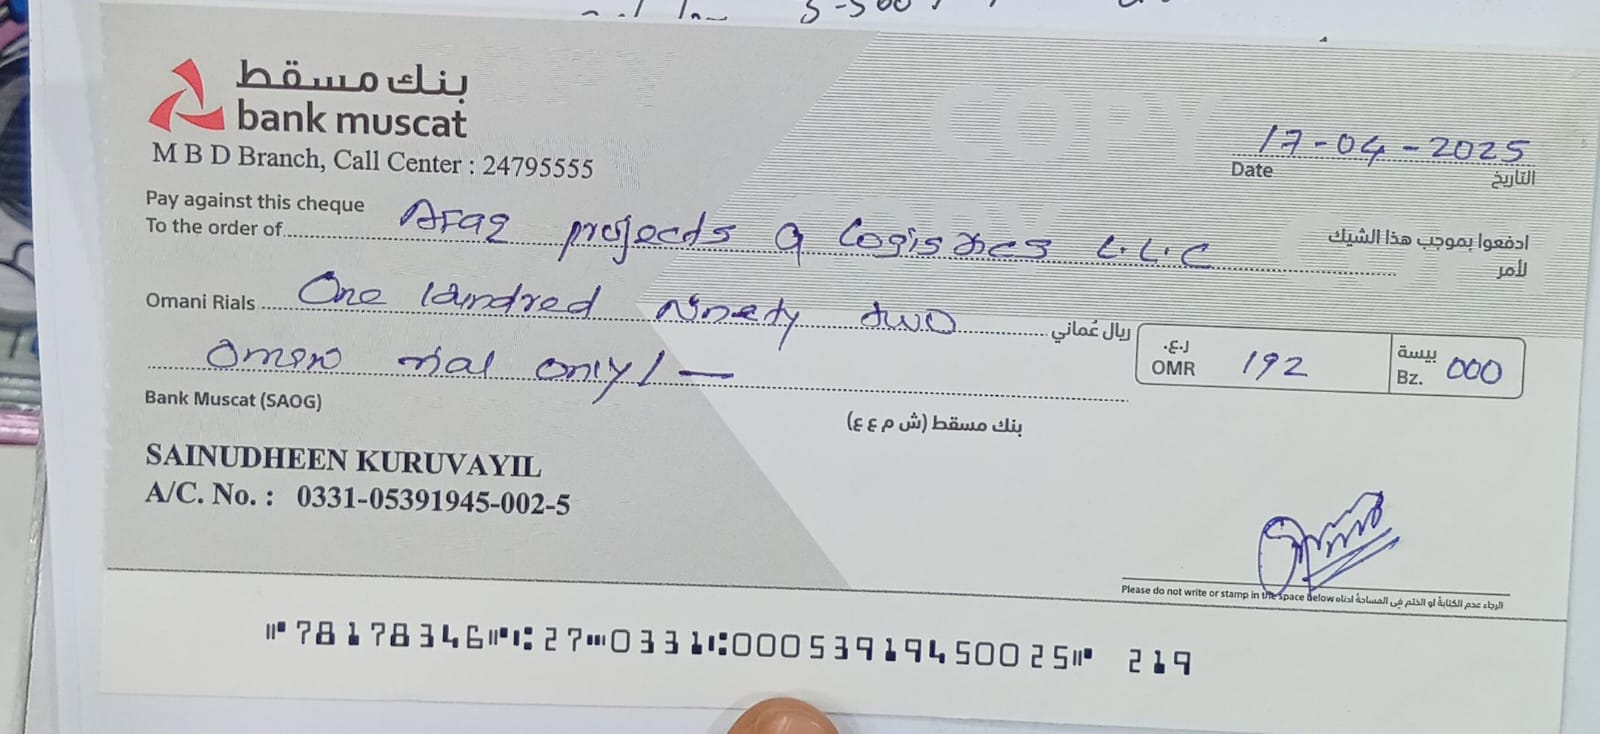 بنك مسقط
bank muscat
M B D Branch, Call Center : 24795555
COPY
17-04-2025
Date التاريخ
Pay against this cheque
To the order of Afaq projects & Logistics L.L.C ادفعوا بموجب هذا الشيك
لأمر
Omani Rials One Hundred Ninety two ريال عُماني
Omani rial only/-
ر.ع. OMR 192 بيسة Bz. 000
Bank Muscat (SAOG) بنك مسقط (ش م ع ع)
SAINUDHEEN KURUVAYIL
A/C. No. : 0331-05391945-002-5
Please do not write or stamp in the space below الرجاء عدم الكتابة او الختم في المساحة ادناه
⑈78178346⑈⑆27⑉0331⑆00053919450025⑈ 219